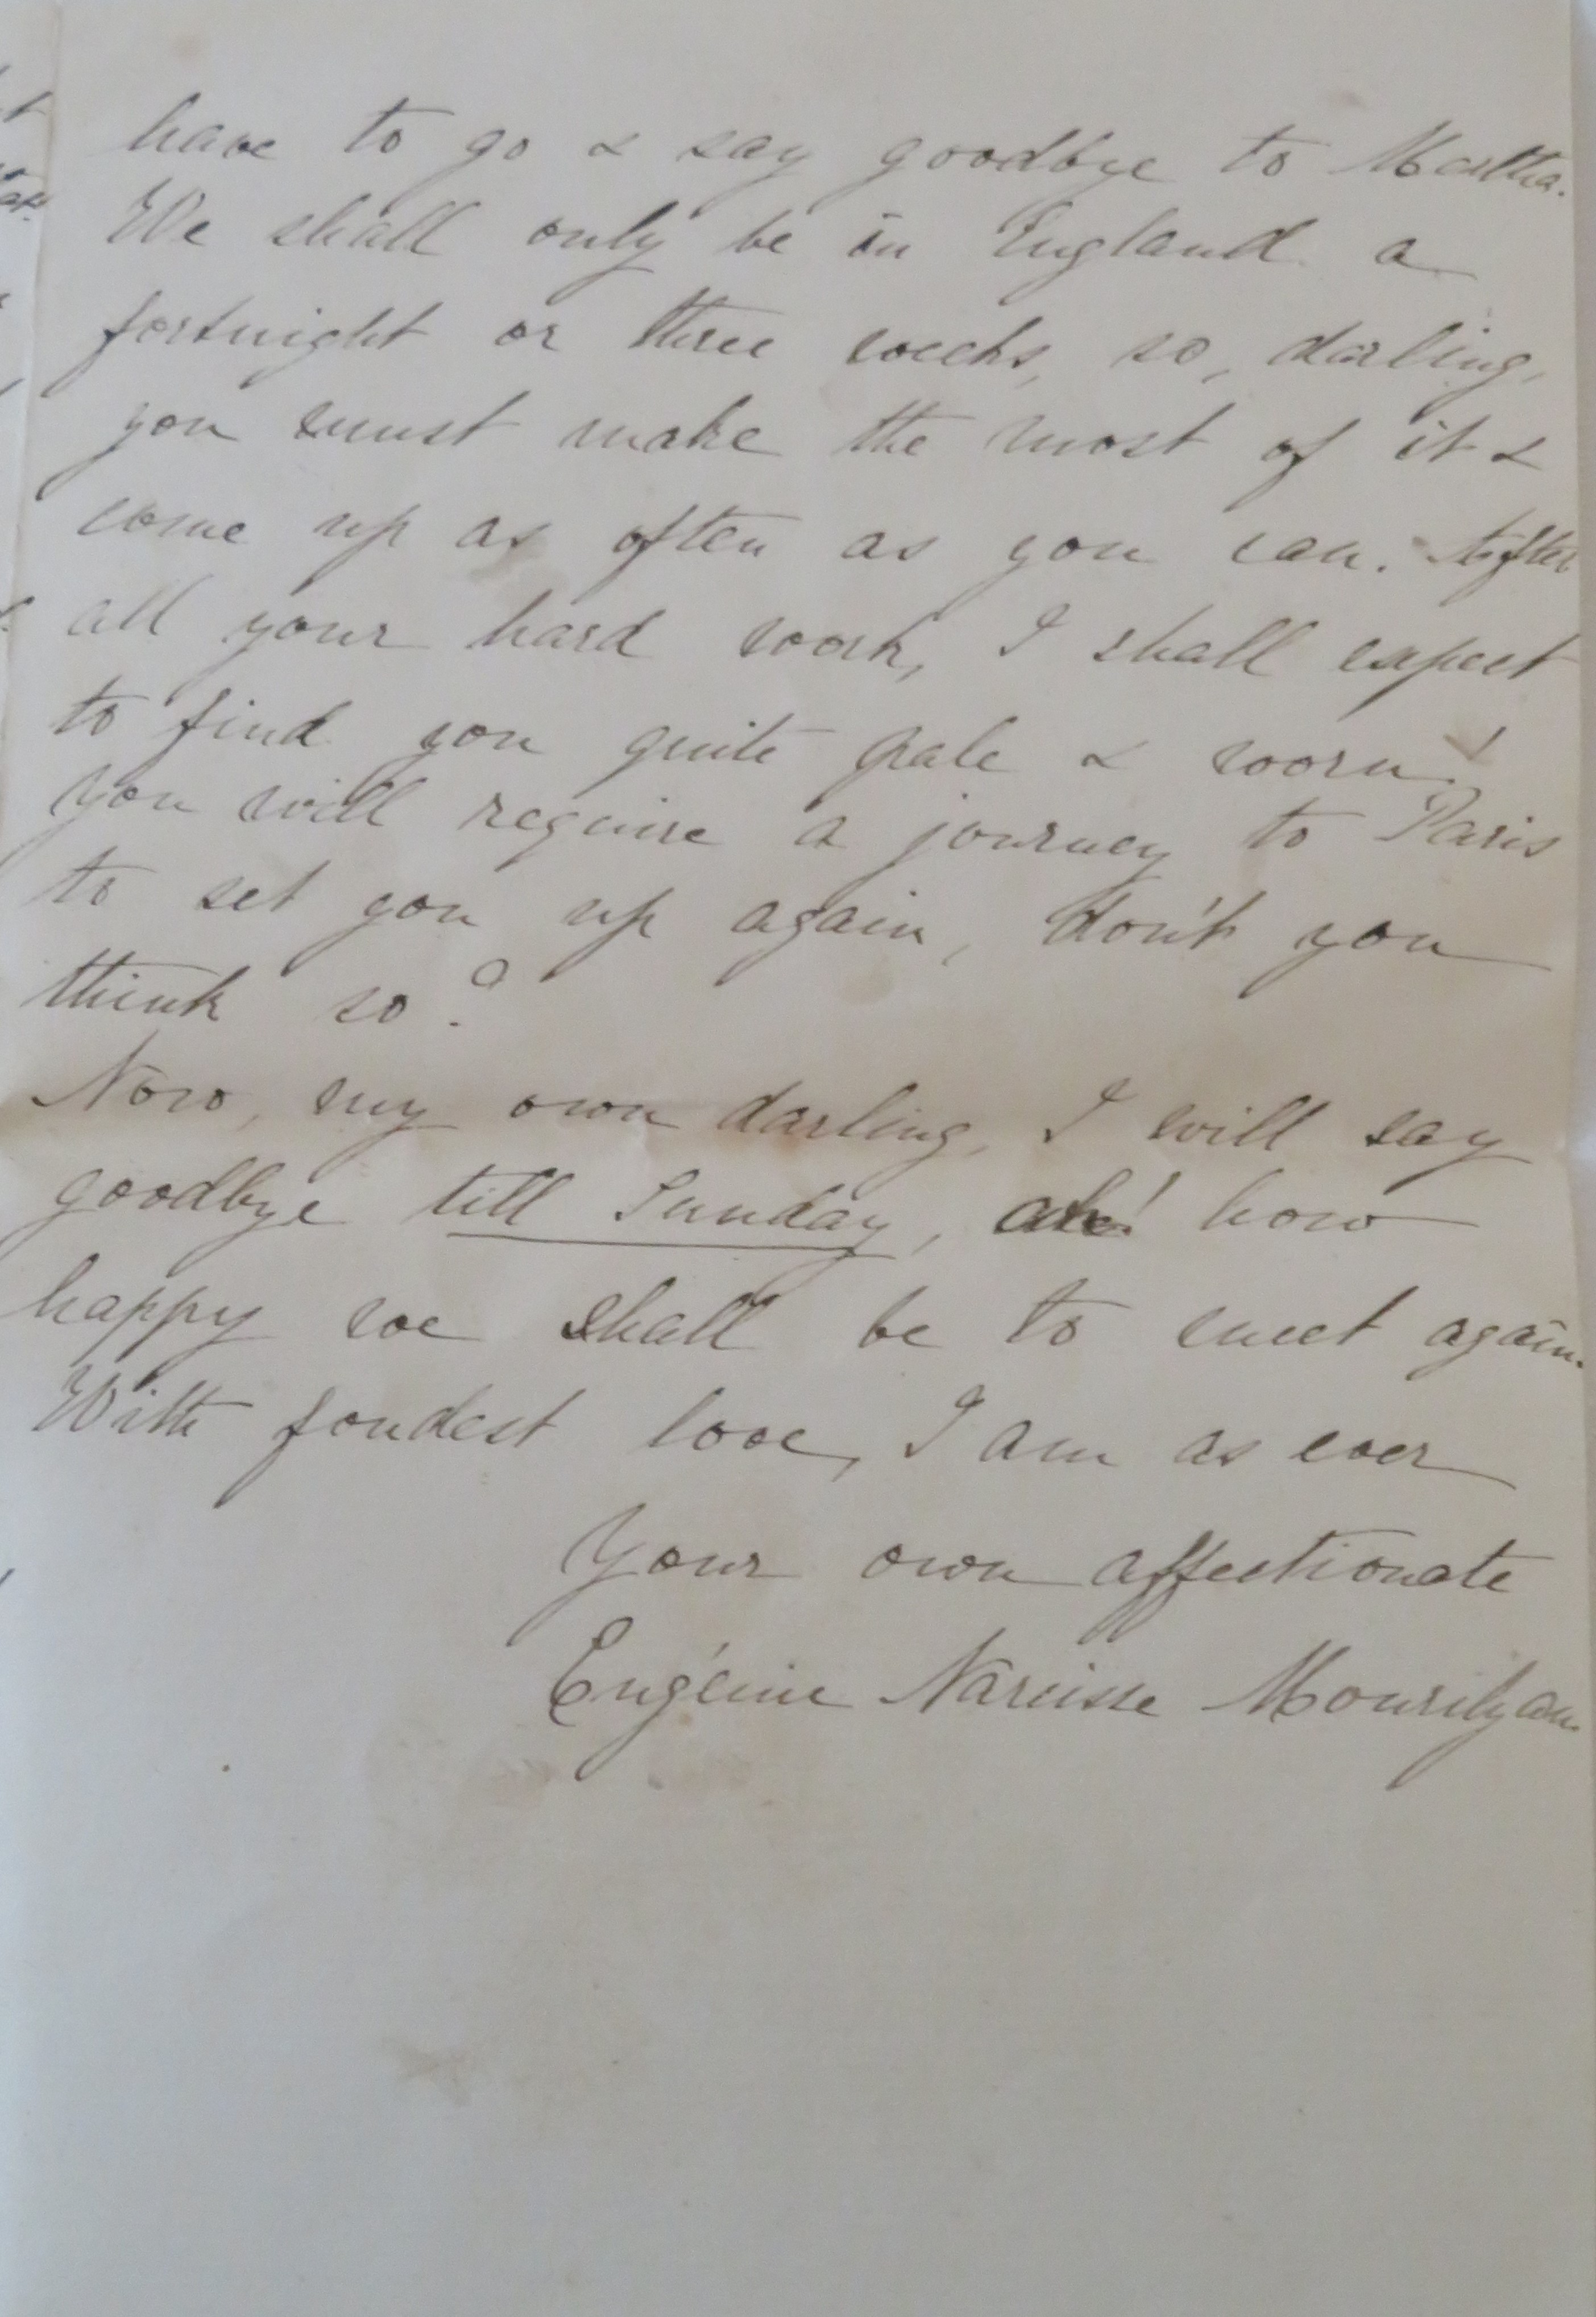 have to go & say goodbye to Martha.
We shall only be in England a
fortnight or three weeks, so, darling,
you must make the most of it &
come up as often as you can. After
all your hard work, I shall expect
to find you quite pale & worn!
You will require a journey to Paris
to set you up again, don't you
think so?
Now, my own darling, I will say
goodbye till Sunday, ah! how
happy we shall be to meet again.
With fondest love, I am as ever
Your own affectionate
Eugénie Narcisse Mourilyan.